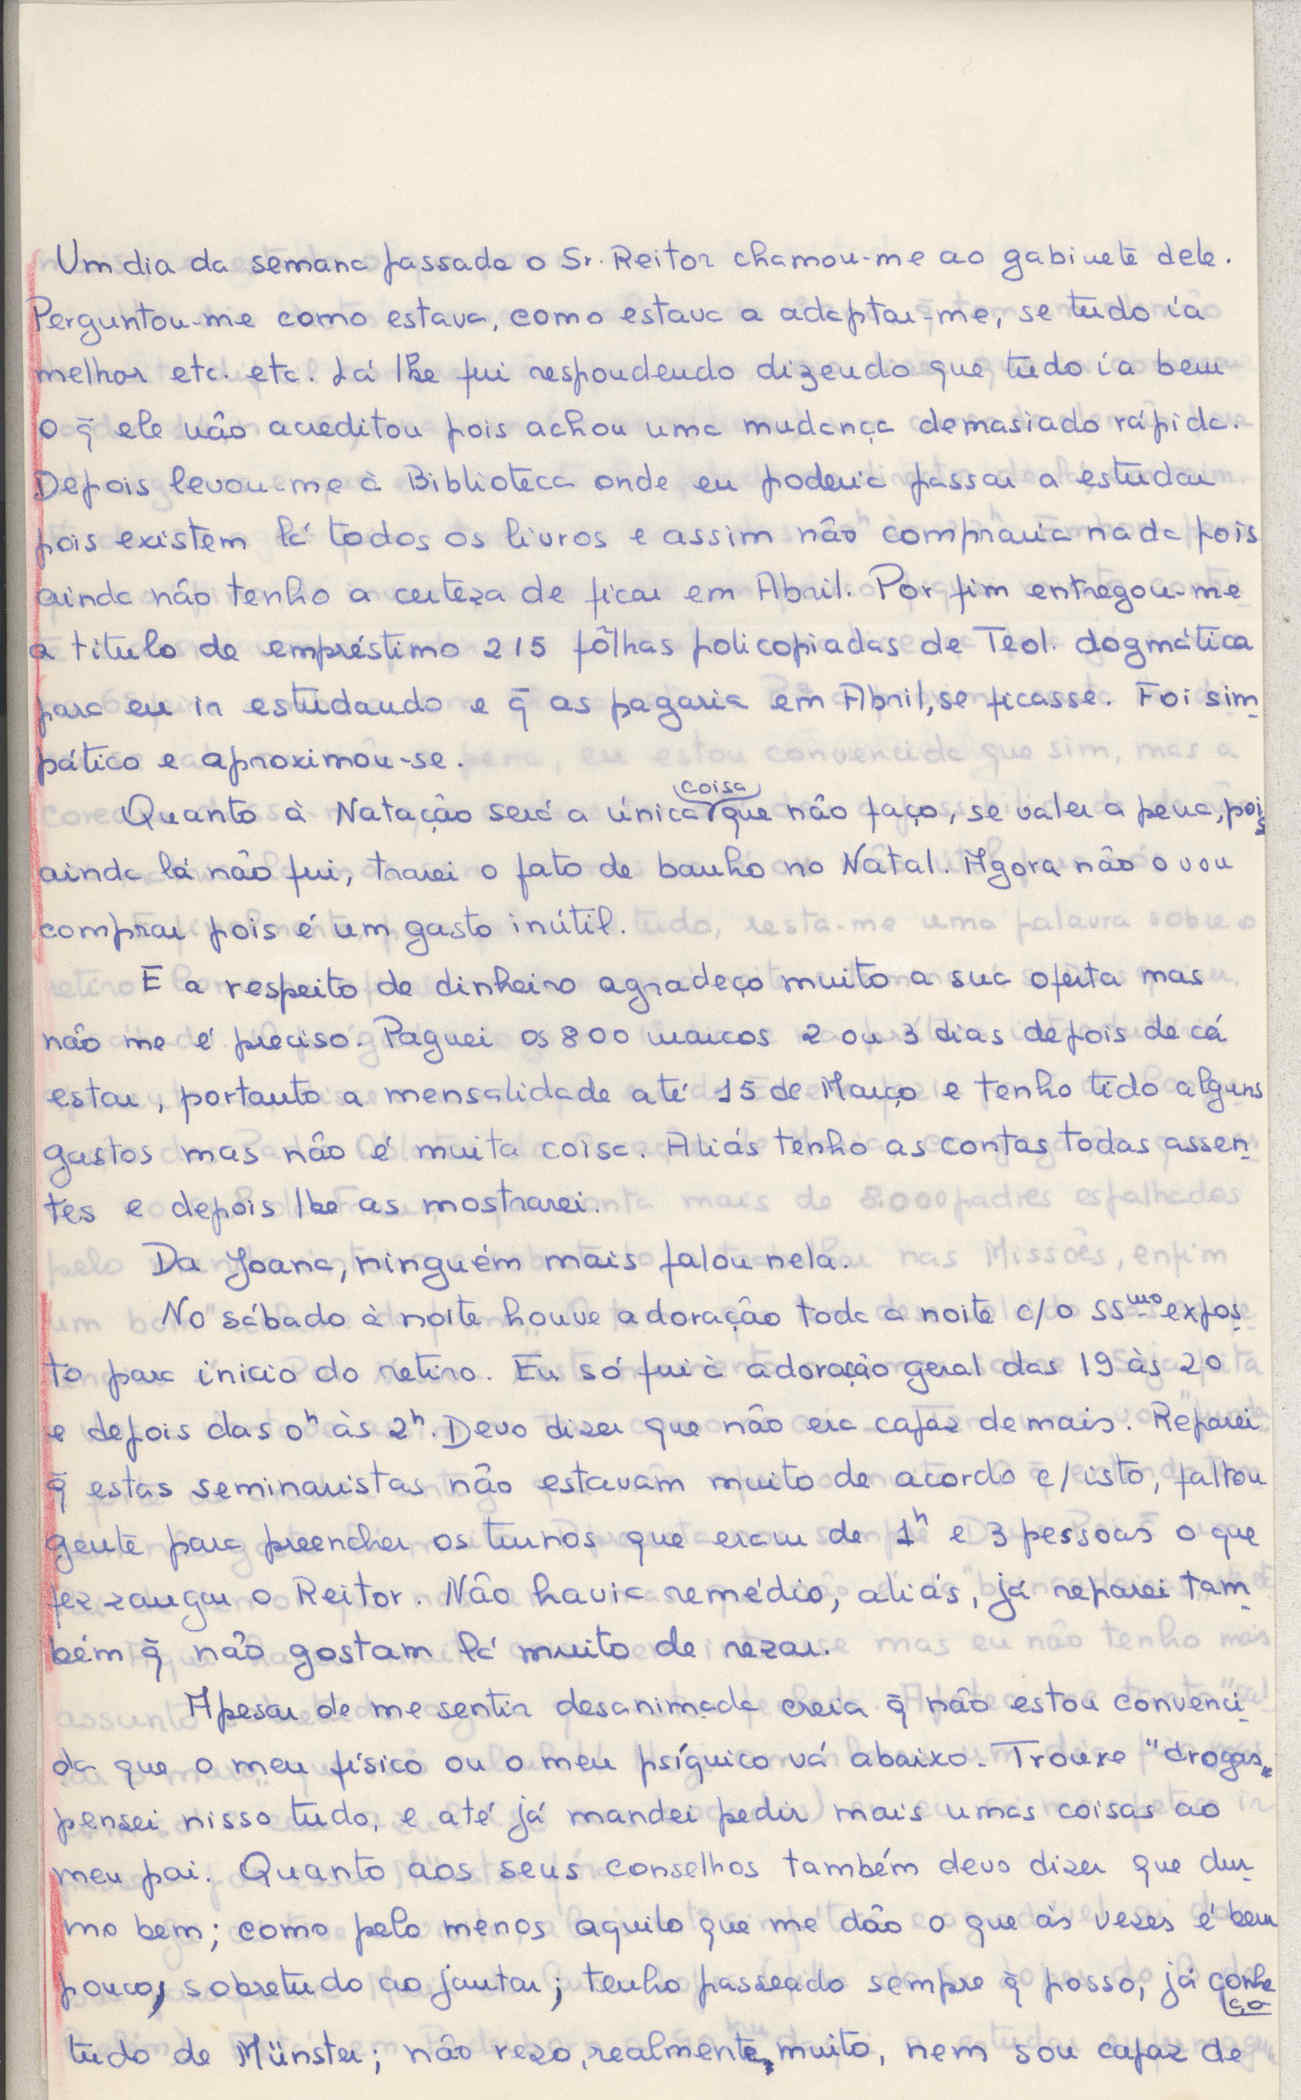 Um dia da semana passada o Sr. Reitor chamou-me ao gabinete dele.
Perguntou-me como estava, como estava a adaptar-me, se tudo ía
melhor etc. etc. Lá lhe fui respondendo dizendo que tudo ía bem
o q̃ ele não acreditou pois achou uma mudança demasiado rápida.
Depois levou-me à Biblioteca onde eu poderia passar a estudar
pois existem lá todos os livros e assim não compraria nada pois
ainda não tenho a certeza de ficar em Abril. Por fim entregou-me
a titulo de empréstimo 215 fôlhas policopiadas de Teol. dogmática
para eu ir estudando e q̃ as pagaria em Abril, se ficasse. Foi sim-
pático e aproximou-se.
Quanto à Natação será a única coisa que não faço, se valer a pena, pois
ainda lá não fui, trarei o fato de banho no Natal. Agora não o vou
comprar pois é um gasto inútil.
E a respeito de dinheiro agradeço muito a sua oferta mas
não me é preciso. Paguei os 800 marcos 2 ou 3 dias depois de cá
estar, portanto a mensalidade até 15 de Março e tenho tido alguns
gastos mas não é muita coisa. Aliás tenho as contas todas assen-
tes e depois lhe as mostrarei.
Da Joana, ninguém mais falou nela.
No sábado à noite houve adoração toda a noite c/o SSmo expos-
to para inicio do retiro. Eu só fui à adoração geral das 19 às 20
e depois das 0h às 2h. Devo dizer que não era capaz de mais. Reparei
q̃ estas seminaristas não estavam muito de acordo c/isto, faltou
gente para preencher os turnos que eram de 1h e 3 pessoas o que
fez zangar o Reitor. Não havia remédio, aliás, já reparei tam-
bém q̃ não gostam lá muito de rezar.
Apesar de me sentir desanimada creia q̃ não estou convenci-
da que o meu físico ou o meu psíquico vá abaixo. Trouxe "drogas"
pensei nisso tudo, e até já mandei pedir mais umas coisas ao
meu pai. Quanto aos seus conselhos também devo dizer que dur-
mo bem; como pelo menos aquilo que me dão o que às vezes é bem
pouco, sobretudo ao jantar; tenho passeado sempre q̃ posso, já conheço
tudo de Münster; não rezo, realmente, muito, nem sou capaz de